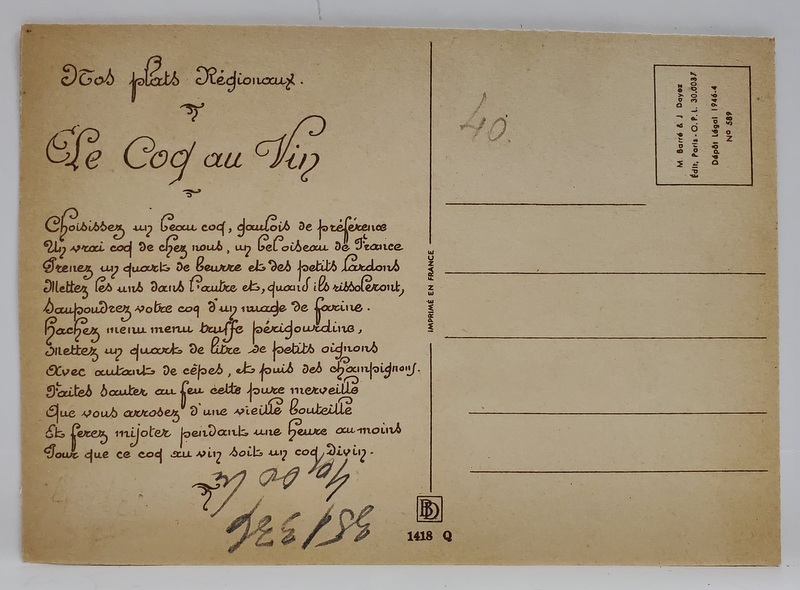 Nos plats Régionaux.
Le Coq au Vin
Choisissez un beau coq, gaulois de préférence
Un vrai coq de chez nous, un bel oiseau de France
Prenez un quart de beurre et des petits lardons
Mettez les uns dans l'autre et, quand ils rissoleront,
Saupoudrez votre coq d'un nuage de farine.
Hachez menu menu truffe périgourdine,
Mettez un quart de litre de petits oignons
Avec autant de cèpes, et puis des champignons.
Faites sauter au feu cette pure merveille
Que vous arrosez d'une vieille bouteille
Et ferez mijoter pendant une heure au moins
Pour que ce coq au vin soit un coq divin.
IMPRIMÉ EN FRANCE
BD
1418 Q
40.
M. Barré & J. Dayez
Édit, Paris - O. P. L. 30.0037
Dépôt Légal 1946-4
No 589